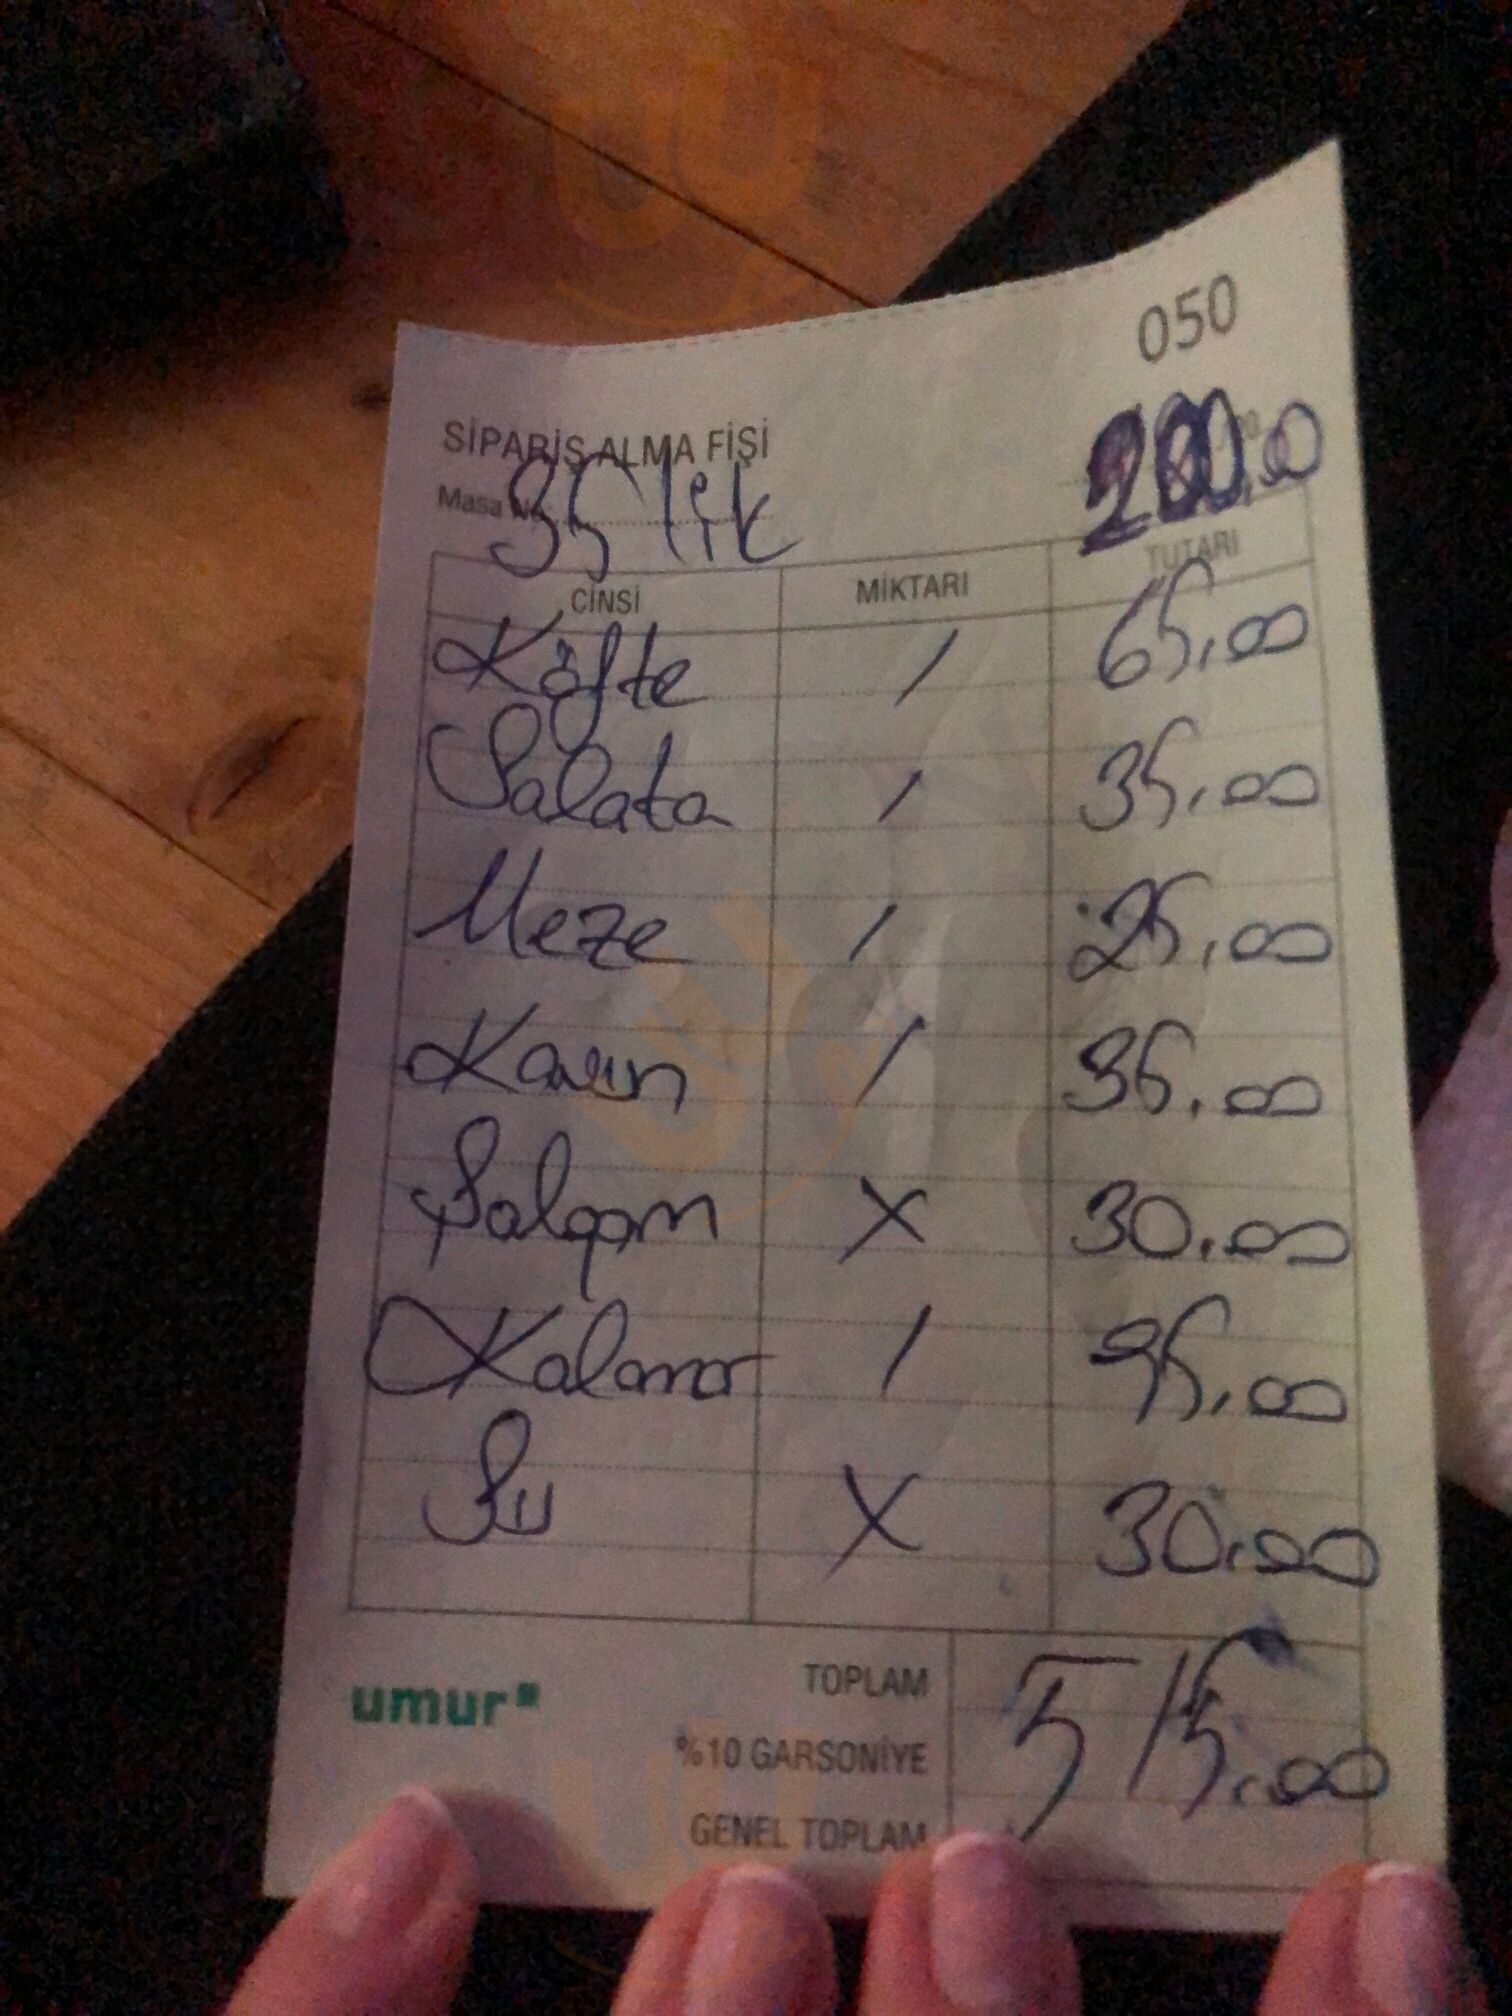 050
SİPARİŞ ALMA FİŞİ
Masa No
35 lik 200.00
CİNSİ MİKTARI TUTARI
Köfte / 65,00
Salata / 35,00
Meze / 25,00
Kavun / 35,00
Şalgam X 30,00
Kalamar / 95,00
Su X 30,00
TOPLAM 515,00
umur
%10 GARSONİYE
GENEL TOPLAM